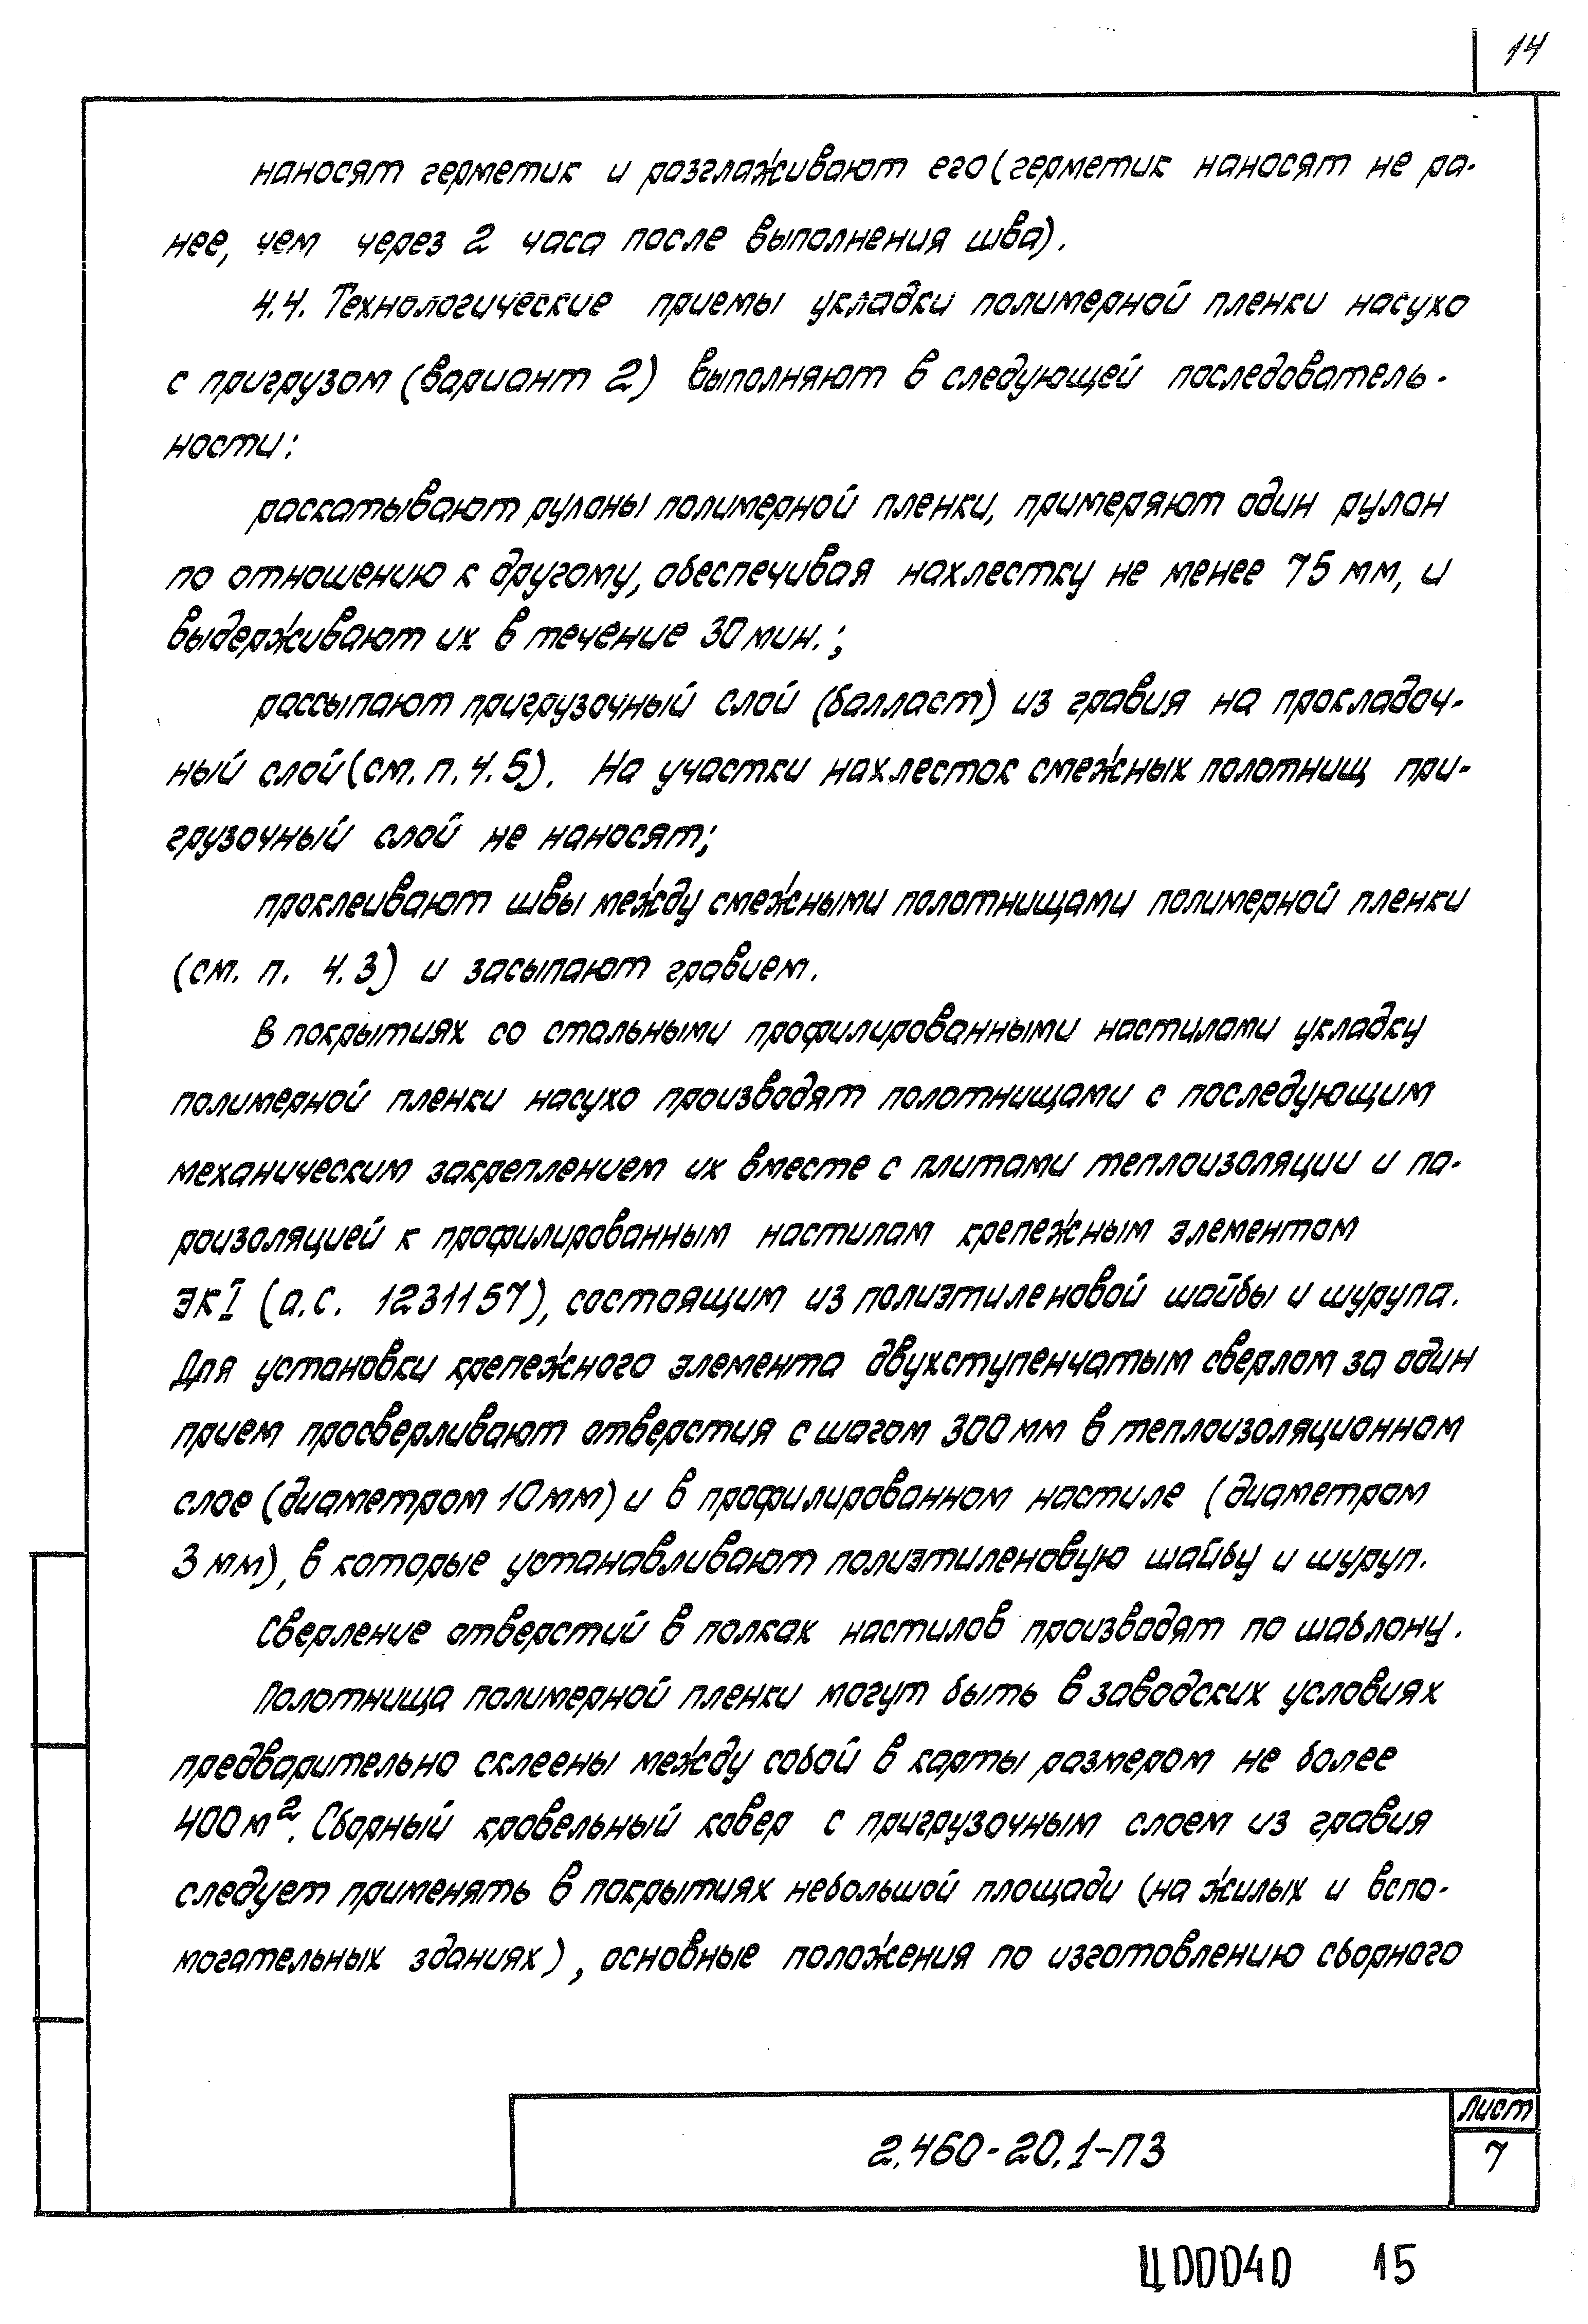 14
наносят герметик и разглаживают его (герметик наносят не ра-
нее, чем через 2 часа после выполнения шва).
4.4. Технологические приемы укладки полимерной пленки насухо
с пригрузом (вариант 2) выполняют в следующей последователь-
ности:
раскатывают рулоны полимерной пленки, примеряют один рулон
по отношению к другому, обеспечивая нахлестку не менее 75 мм, и
выдерживают их в течение 30 мин.;
рассыпают пригрузочный слой (балласт) из гравия на прокладоч-
ный слой (см. п. 4.5). На участки нахлесток смежных полотнищ при-
грузочный слой не наносят;
проклеивают швы между смежными полотнищами полимерной пленки
(см. п. 4.3) и засыпают гравием.
В покрытиях со стальными профилированными настилами укладку
полимерной пленки насухо производят полотнищами с последующим
механическим закреплением их вместе с плитами теплоизоляции и па-
роизоляцией к профилированным настилам крепежным элементом
ЭКI (а.с. 1231157), состоящим из полиэтиленовой шайбы и шурупа.
Для установки крепежного элемента двухступенчатым сверлом за один
прием просверливают отверстия с шагом 300 мм в теплоизоляционном
слое (диаметром 10 мм) и в профилированном настиле (диаметром
3 мм), в которые устанавливают полиэтиленовую шайбу и шуруп.
Сверление отверстий в полках настилов производят по шаблону.
Полотнища полимерной пленки могут быть в заводских условиях
предварительно склеены между собой в карты размером не более
400 м². Сборный кровельный ковер с пригрузочным слоем из гравия
следует применять в покрытиях небольшой площади (на жилых и вспо-
могательных зданиях), основные положения по изготовлению сборного
2.460-20.1-ПЗ
Лист
7
Ц00040 15